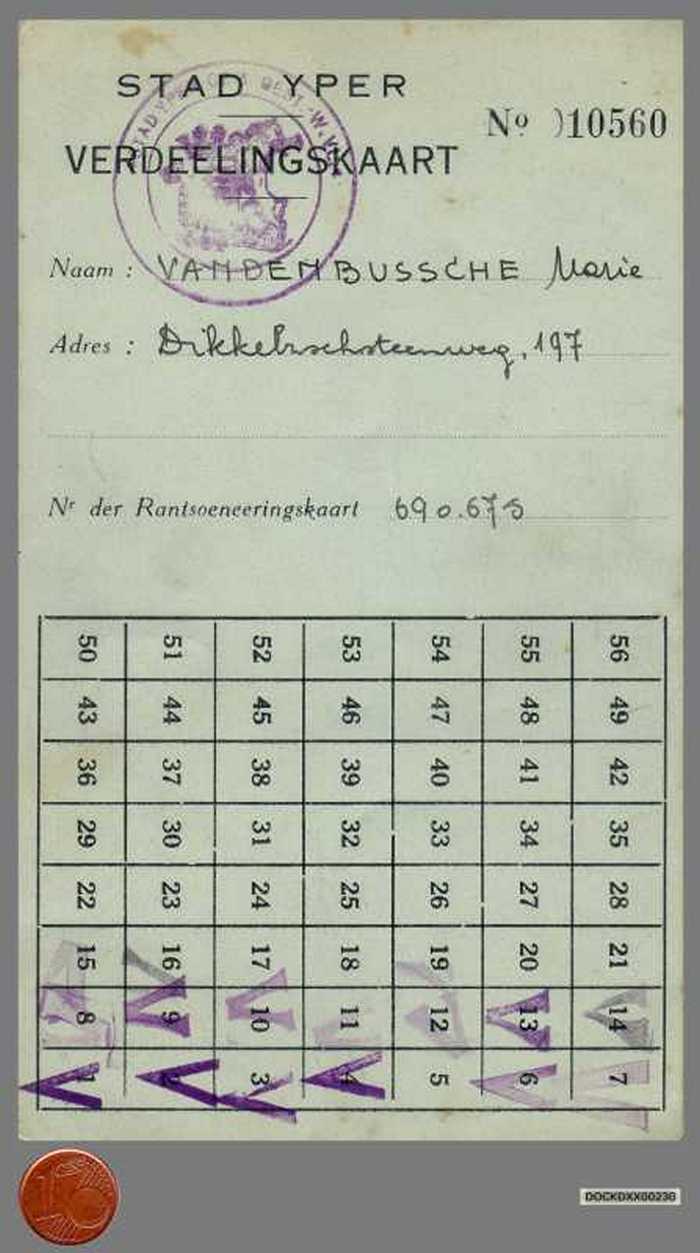 STAD YPER
Nº 10560
VERDEELINGSKAART
Naam : VANDENBUSSCHE Marie
Adres : Dikkebuschsteenweg, 197
Nr der Rantsoeneeringskaart 690.675
50 51 52 53 54 55 56
43 44 45 46 47 48 49
36 37 38 39 40 41 42
29 30 31 32 33 34 35
22 23 24 25 26 27 28
15 16 17 18 19 20 21
8 9 10 11 12 13 14
1 2 3 4 5 6 7
1
DOCKDXX00230